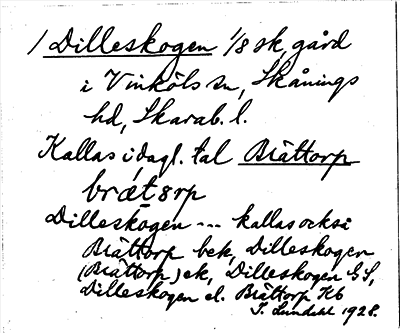 / Dilleskogen 1/8 sk, gård
i Vinköls sn, Skånings
hd, Skarab. l.
Kallas i dagl. tal Brättorp
brætərp
Dilleskogen --- kallas också
Brättorp bek, Dilleskogen
(Brättorp) ek, Dilleskogen GS,
Dilleskogen el. Brättorp Kb
T. Lindahl 1928.